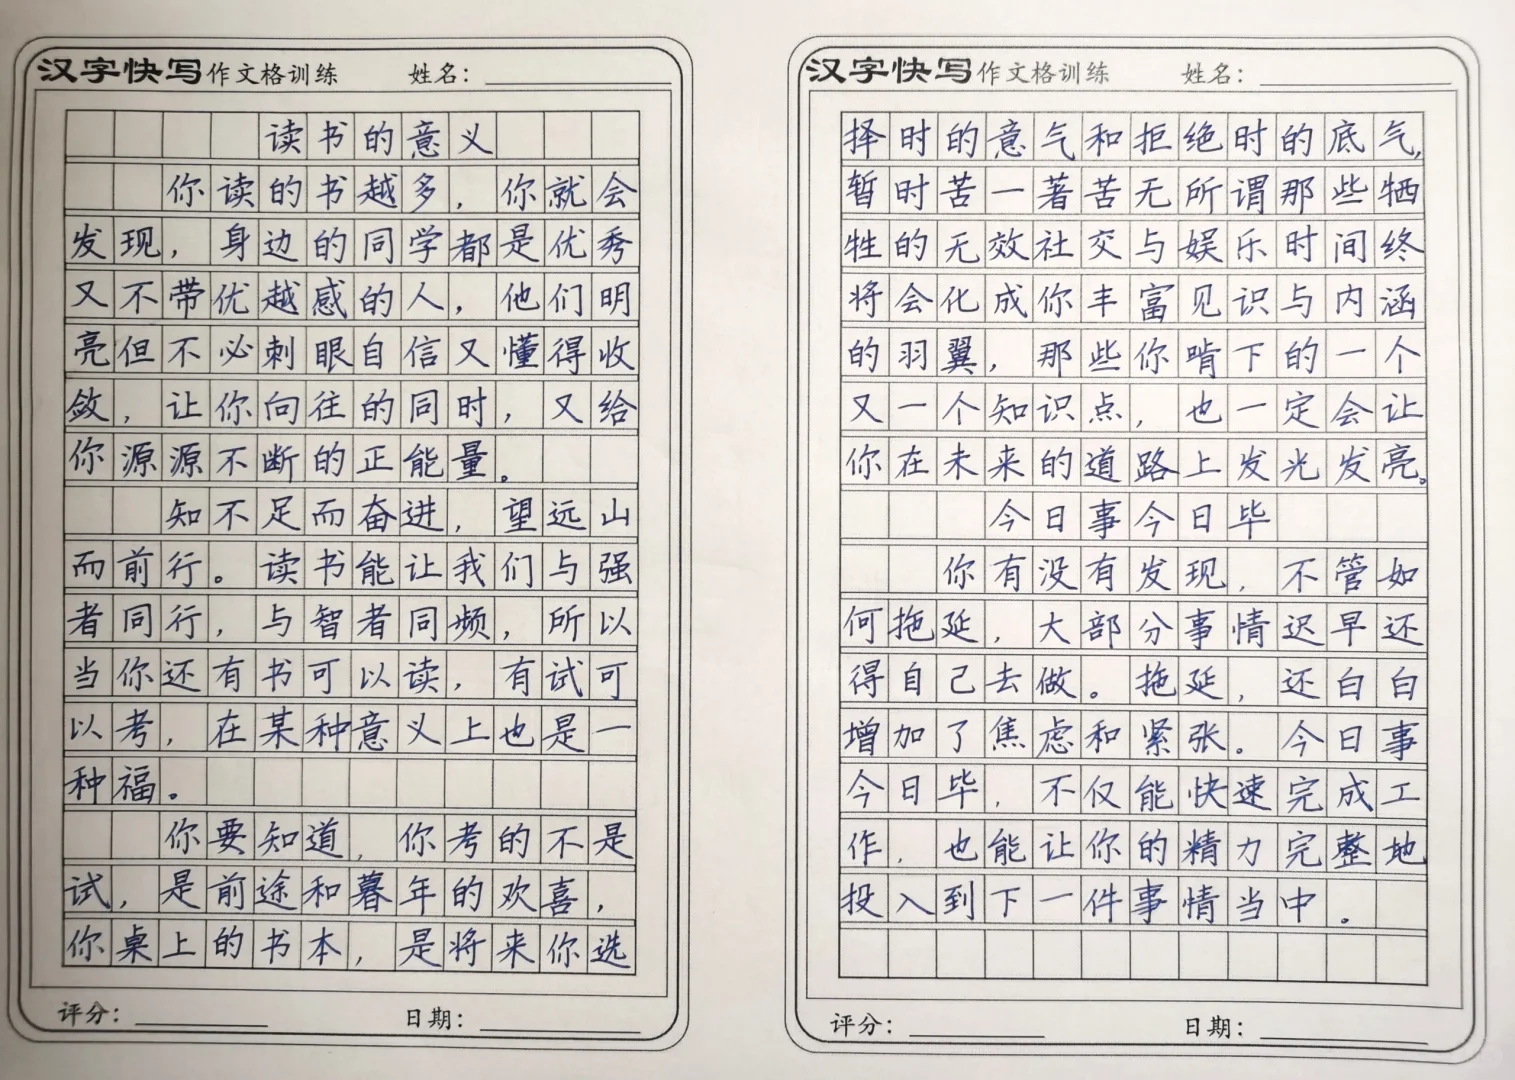 汉字快写作文格训练 姓名：
读书的意义
你读的书越多，你就会
发现，身边的同学都是优秀
又不带优越感的人，他们明
亮但不必刺眼自信又懂得收
敛，让你向往的同时，又给
你源源不断的正能量。
知不足而奋进，望远山
而前行。读书能让我们与强
者同行，与智者同频，所以
当你还有书可以读，有试可
以考，在某种意义上也是一
种福。
你要知道，你考的不是
试，是前途和暮年的欢喜，
你桌上的书本，是将来你选
评分： 日期：
汉字快写作文格训练 姓名：
择时的意气和拒绝时的底气，
暂时苦一著苦无所谓那些牺
牲的无效社交与娱乐时间终
将会化成你丰富见识与内涵
的羽翼，那些你啃下的一个
又一个知识点，也一定会让
你在未来的道路上发光发亮。
今日事今日毕
你有没有发现，不管如
何拖延，大部分事情迟早还
得自己去做。拖延，还白白
增加了焦虑和紧张。今日事
今日毕，不仅能快速完成工
作，也能让你的精力完整地
投入到下一件事情当中。
评分： 日期：